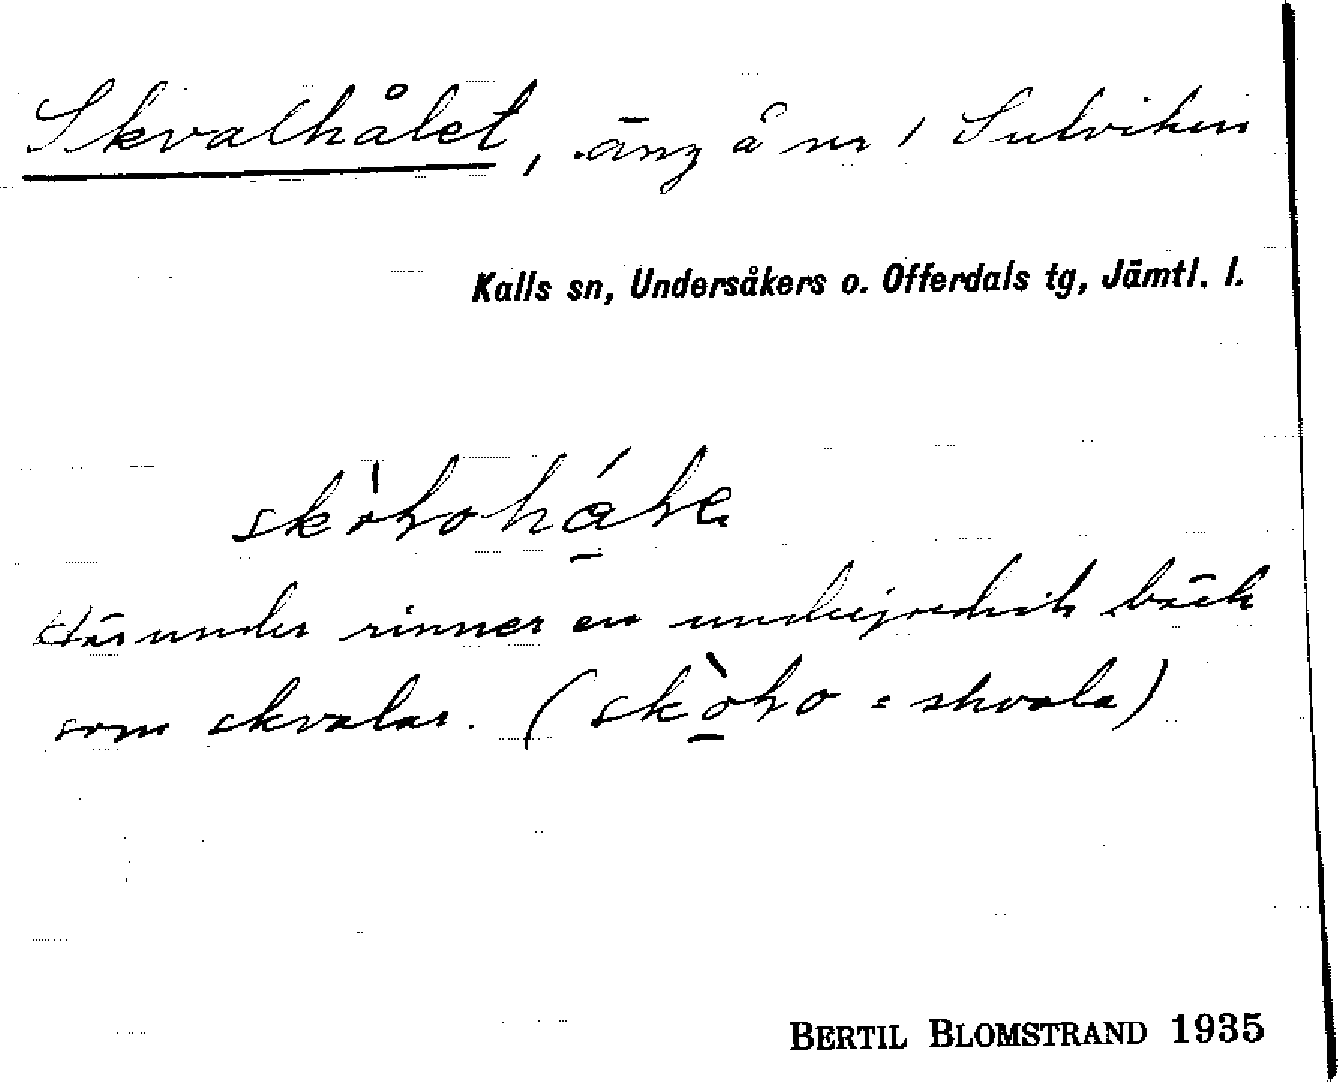 Skvalhålet, äng å nr 1 Sulviken
Kalls sn, Undersåkers o. Offerdals tg, Jämtl. l.
Härunder rinner en underjordisk bäck
som skvalar. ( = skvala)
BERTIL BLOMSTRAND 1935